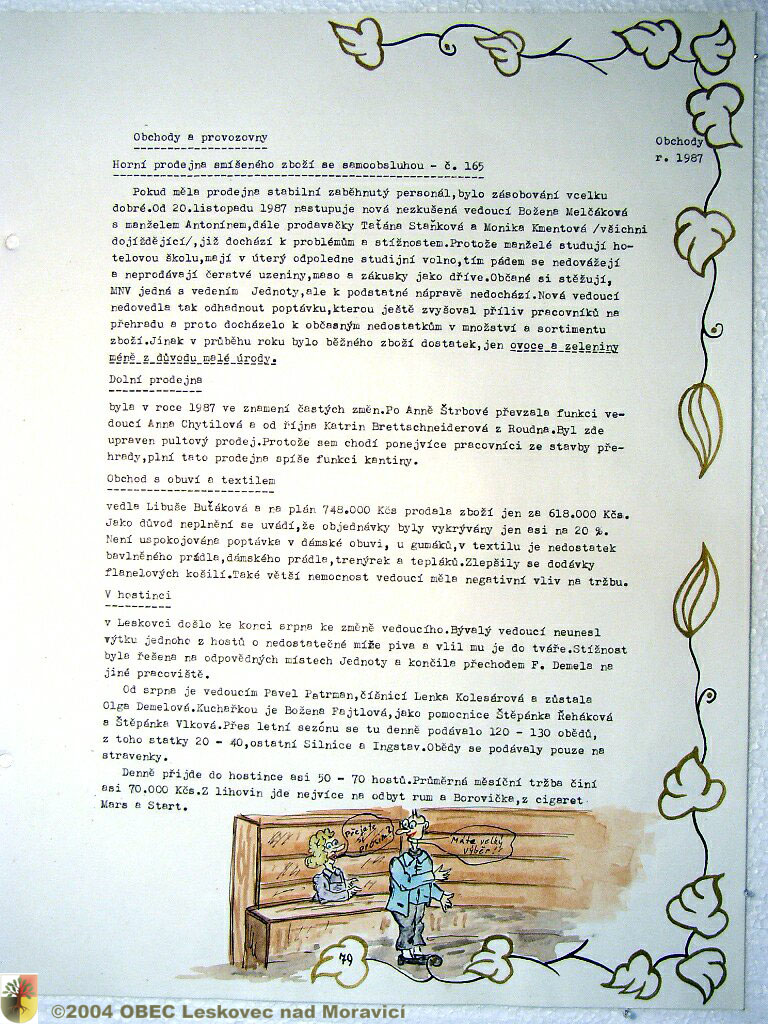 Obchody a provozovny
Obchody
r. 1987
Horní prodejna smíšeného zboží se samoobsluhou - č. 165
Pokud měla prodejna stabilní zaběhnutý personál,bylo zásobování vcelku
dobré.Od 20.listopadu 1987 nastupuje nová nezkušená vedoucí Božena Melčáková
s manželem Antonínem,dále prodavačky Taťána Staňková a Monika Kmentová /všichni
dojíždějící/,již dochází k problémům a stížnostem.Protože manželé studují ho-
telovou školu,mají v úterý odpoledne studijní volno,tím pádem se nedovážejí
a neprodávají čerstvé uzeniny,maso a zákusky jako dříve.Občané si stěžují,
MNV jedná s vedením Jednoty,ale k podstatné nápravě nedochází.Nová vedoucí
nedovedla tak odhadnout poptávku,kterou ještě zvyšoval příliv pracovníků na
přehradu a proto docházelo k občasným nedostatkům v množství a sortimentu
zboží.Jinak v průběhu roku bylo běžného zboží dostatek,jen ovoce a zeleniny
méně z důvodu malé úrody.
Dolní prodejna
byla v roce 1987 ve znamení častých změn.Po Anně Štrbové převzala funkci ve-
doucí Anna Chytilová a od října Katrin Brettschneiderová z Roudna.Byl zde
upraven pultový prodej.Protože sem chodí ponejvíce pracovníci ze stavby pře-
hrady,plní tato prodejna spíše funkci kantiny.
Obchod s obuví a textilem
vedla Libuše Buťáková a na plán 748.000 Kčs prodala zboží jen za 618.000 Kčs.
Jako důvod neplnění se uvádí,že objednávky byly vykrývány jen asi na 20 %.
Není uspokojována poptávka v dámské obuvi, u gumáků,v textilu je nedostatek
bavlněného prádla,dámského prádla,trenýrek a tepláků.Zlepšily se dodávky
flanelových košilí.Také větší nemocnost vedoucí měla negativní vliv na tržbu.
V hostinci
v Leskovci došlo ke konci srpna ke změně vedoucího.Bývalý vedoucí neunesl
výtku jednoho z hostů o nedostatečné míře piva a vlil mu je do tváře.Stížnost
byla řešena na odpovědných místech Jednoty a končila přechodem F. Demela na
jiné pracoviště.
Od srpna je vedoucím Pavel Patrman,číšnicí Lenka Kolesárová a zůstala
Olga Demelová.Kuchařkou je Božena Fajtlová,jako pomocnice Štěpánka Řeháková
a Štěpánka Vlková.Přes letní sezónu se tu denně podávalo 120 - 130 obědů,
z toho statky 20 - 40,ostatní Silnice a Ingstav.Obědy se podávaly pouze na
stravenky.
Denně přijde do hostince asi 50 - 70 hostů.Průměrná měsíční tržba činí
asi 70.000 Kčs.Z lihovin jde nejvíce na odbyt rum a Borovička,z cigaret
Mars a Start.
Přejete
si
prosím?
Máte velký
výběr!!
79
©2004 OBEC Leskovec nad Moravicí